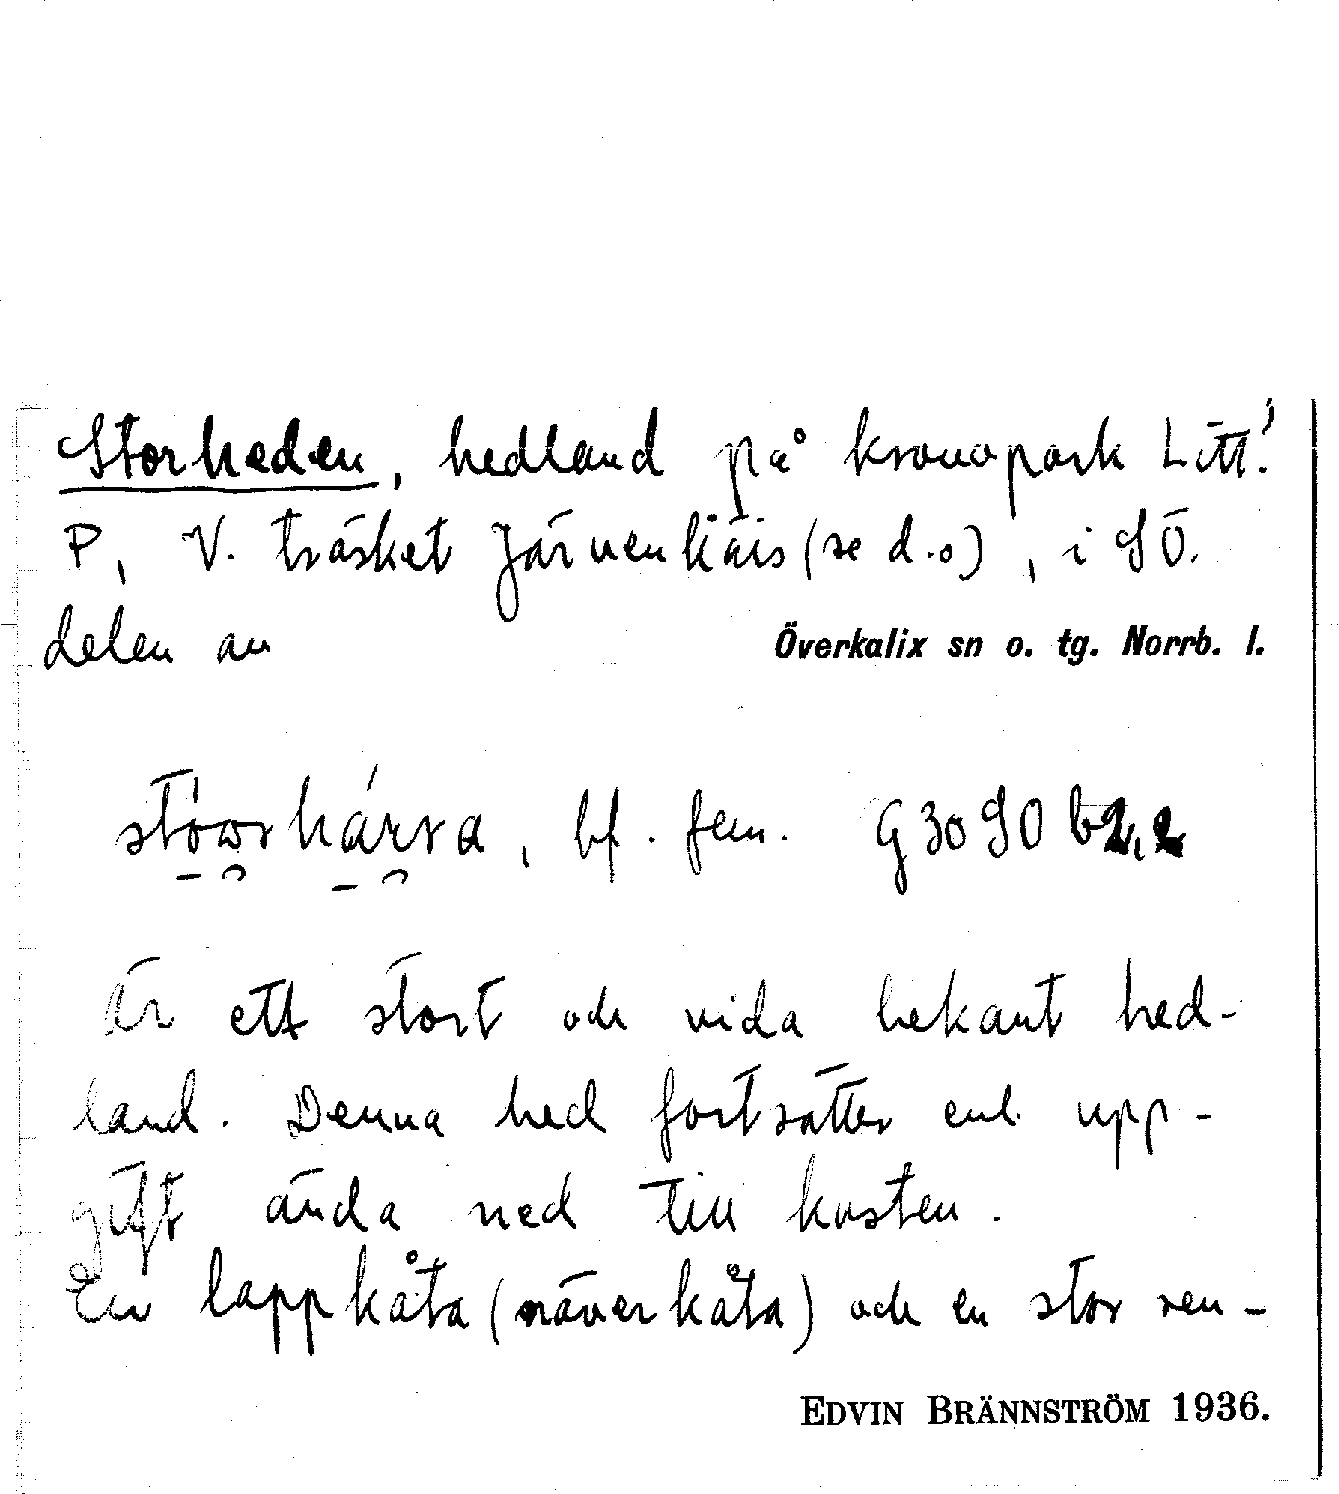 Storheden, hedland på kronopark Litt.
P, V. träsket Järvenkäis (se d.o), i SÖ.
delen av Överkalix sn o. tg. Norrb. l.
stówrhárra, bf. fem. G 30 SO b 2,2
Är ett stort och vida bekant hed-
land. Denna hed fortsätter enl. upp-
gift ända ned till kusten.
En lappkåta (näverkåta) och en stor ren-
EDVIN BRÄNNSTRÖM 1936.